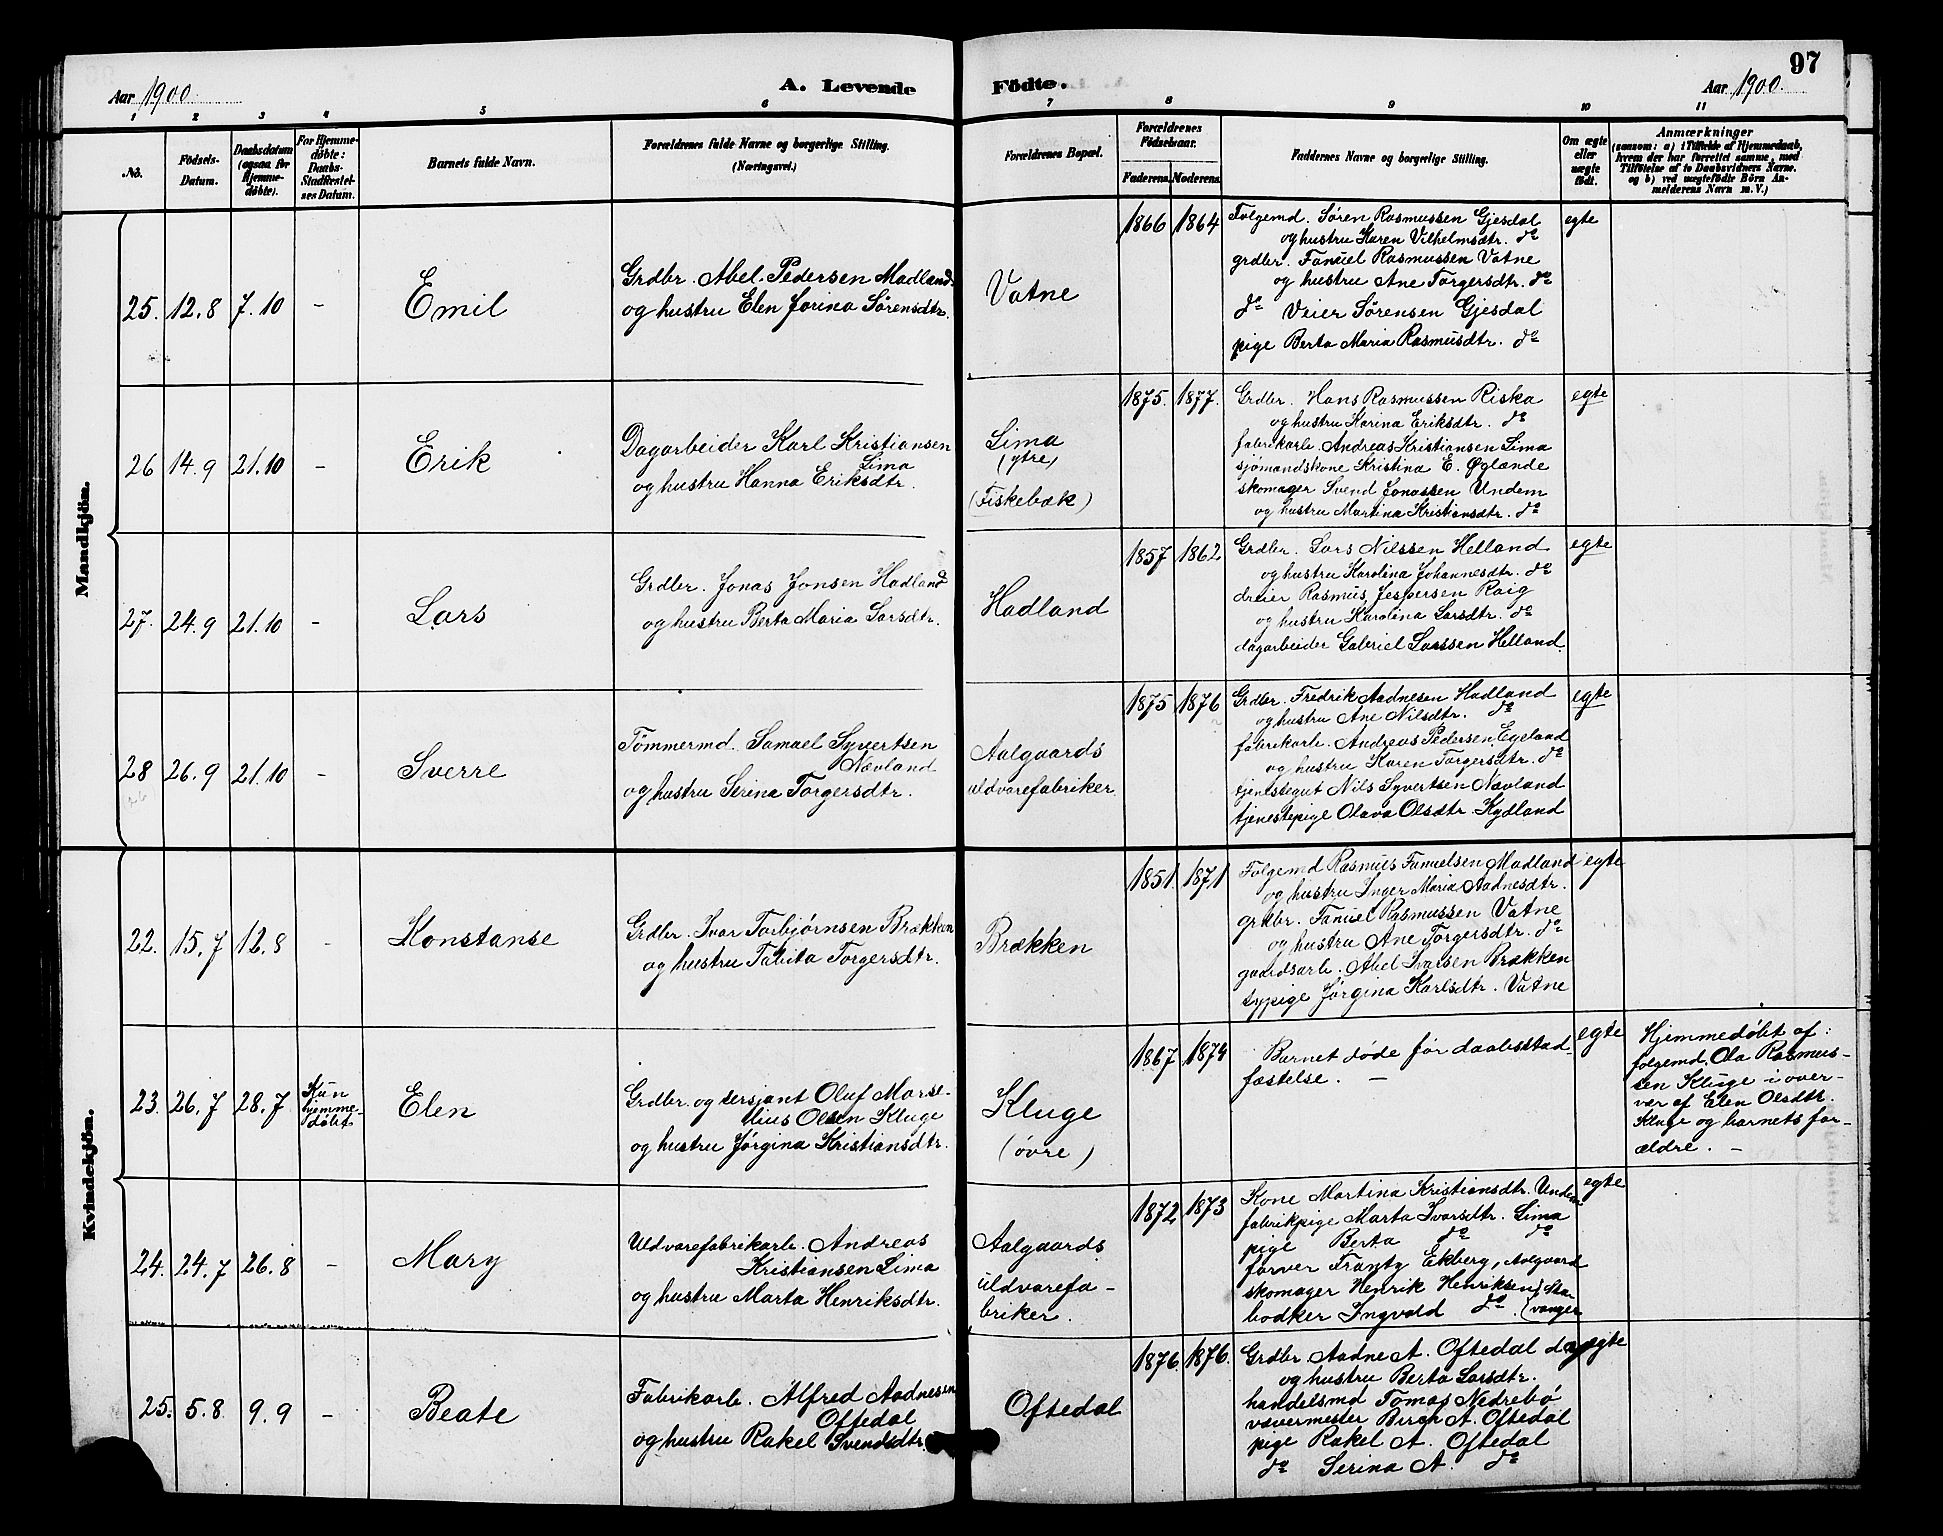 97
Aar 1900.
A. Levende Födte.
Aar 1900.
1 2 3 4 5 6 7 8 9 10 11
No.
Födsels-
Datum.
Daabsdatum
(ogsaa for
Hjemme-
døbte).
For Hjemme-
døbte:
Daabs-
Stadfæstel-
ses Datum.
Barnets fulde Navn.
Forældrenes fulde Navne og borgerlige Stilling.
(Næringsvei.)
Forældrenes Bopæl.
Forældrenes
Födselsaar.
Faderens. Moderens.
Faddernes Navne og borgerlige Stilling.
Om ægte
eller
uægte
født.
Anmærkninger
(saasom: a) i Tilfælde af Hjemmedaab,
hvem der har forrettet samme, med
Tilföielse af to Daabsvidners Navne,
og b) ved uægtefödte Börn An-
melderens Navn m. V.)
Mandkjön.
25. 12.8 7.10 –
Emil
Grdbr. Abel Pedersen Madland
og hustru Elen Jorina Sørensdtr.
Vatne
1866 1864
Folgemd. Søren Rasmussen Gjesdal
og hustru Karen Vilhelmsdtr. do
grdbr. Fanuel Rasmussen Vatne
og hustru Ane Torgersdtr. do
do Veier Sørensen Gjesdal
pige Berta Maria Rasmusdtr. do
egte
26 14.9 21.10 –
Erik
Dagarbeider Karl Kristiansen
Lima
og hustru Hanna Eriksdtr.
Lima
(ytre)
(Fiskebæk)
1875. 1877.
Grdbr. Hans Rasmussen Riska
og hustru Karina Eriksdtr. do
fabrikarb. Andreas Kristiansen Lima
sjømandskone Kristina E. Øglænde
skomager Svend Jonassen Undem
og hustru Martina Kristiansdtr. do
egte
27. 24.9 21.10 –
Lars
Grdbr. Jonas Jonsen Hadland
og hustru Berta Maria Larsdtr.
Hadland
1857 1862
Grdbr. Lars Nilssen Helland
og hustru Karolina Johannesdtr. do
dreier Rasmus Jespersen Roig
og hustru Karolina Larsdtr. do
dagarbeider Gabriel Larssen Helland
egte
28 26.9 21.10 –
Sverre
Tømmermd. Samuel Syvertsen
Nævland
og hustru Serina Torgersdtr.
Aalgaards
uldvarefabriker
1875 1876
Grdbr. Fredrik Aadnesen Hadland
og hustru Ane Nilsdtr. do
fabrikarb. Andreas Pedersen Egeland
og hustru Karen Torgersdtr. do
tjenstegut Nils Syvertsen Nævland
tjenestepige Olava Olsdtr. Kydland
egte
Kvindekjön.
22. 15.7 12.8 –
Konstanse
Grdbr. Ivar Torbjørnsen Brækken
og hustru Tabita Torgersdtr.
Brækken
1851. 1871
Folgemd Rasmus Fanuelsen Madland
og hustru Inger Maria Aadnesdtr.
grdbr. Fanuel Rasmussen Vatne
og hustru Ane Torgersdtr. do
gaardsarb. Abel Ivarsen Brækken
sypige Jørgina Karlsdtr. Vatne
egte
23. 26.7 28.7
Kun
hjemme-
døbt
Elen
Grdbr. og sersjant Oluf Marse-
lius Olsen Kluge
og hustru Jørgina Kristiansdtr.
Kluge
(øvre)
1867 1874
Barnet døde før daabsstad-
fæstelse. –
egte
Hjemmedøbt af
folgemd. Ola Rasmus-
sen Kluge i over-
vær af Elen Olsdtr.
Kluge og barnets for-
ældre. –
24. 24.7 26.8 –
Mary
Uldvarefabrikarb. Andreas
Kristiansen Lima
og hustru Marta Henriksdtr.
Aalgaards
uldvarefa-
briker.
1872 1873
Kone Martina Kristiansdtr. Undem
fabrikpige Marta Ivarsdtr. Lima
pige Berta do do
farver Frantz Ekberg, Aalgaard
skomager Henrik Henriksen (Sta-
bødker Ingvald do (vanger
egte
25. 5.8 9.9 –
Beate
Fabrikarb. Alfred Aadnesen
Oftedal
og hustru Rakel Svendsdtr.
Oftedal
1876. 1876.
Grdbr. Aadne A. Oftedal
og hustru Berta Larsdtr.
handelsmd Tomas Nedrebø
vævermester Birch A. Oftedal
pige Rakel A. Oftedal
do Serina A. do
egte